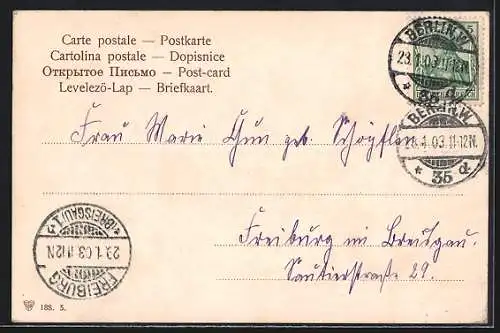 Carte postale — Postkarte
Cartolina postale — Dopisnice
Открытое Письмо — Post-card
Levelező-Lap — Briefkaart.
BERLIN.W.
28.1.03.11-12N.
* 35 d.
BERLIN.W.
28.1.03.11-12N.
* 35 d.
Frau Marie Gun geb. Schöpflin
Freiburg im Breisgau.
Sautierstraße 29.
FREIBURG
29.1.03 11-12N
*(BREISGAU)1
188. 5.